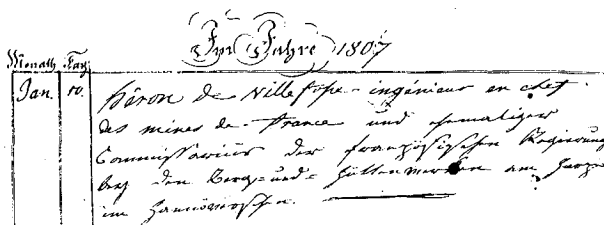 Im Jahre 1807
Monath Tag
Jan. 10. Héron de Villefosse ingénieur en chef
des mines de France und ehemaliger
Commissarius der französischen Regierung
bey den Berg- und Hüttenwerken am Harze
im Hannövrischen.